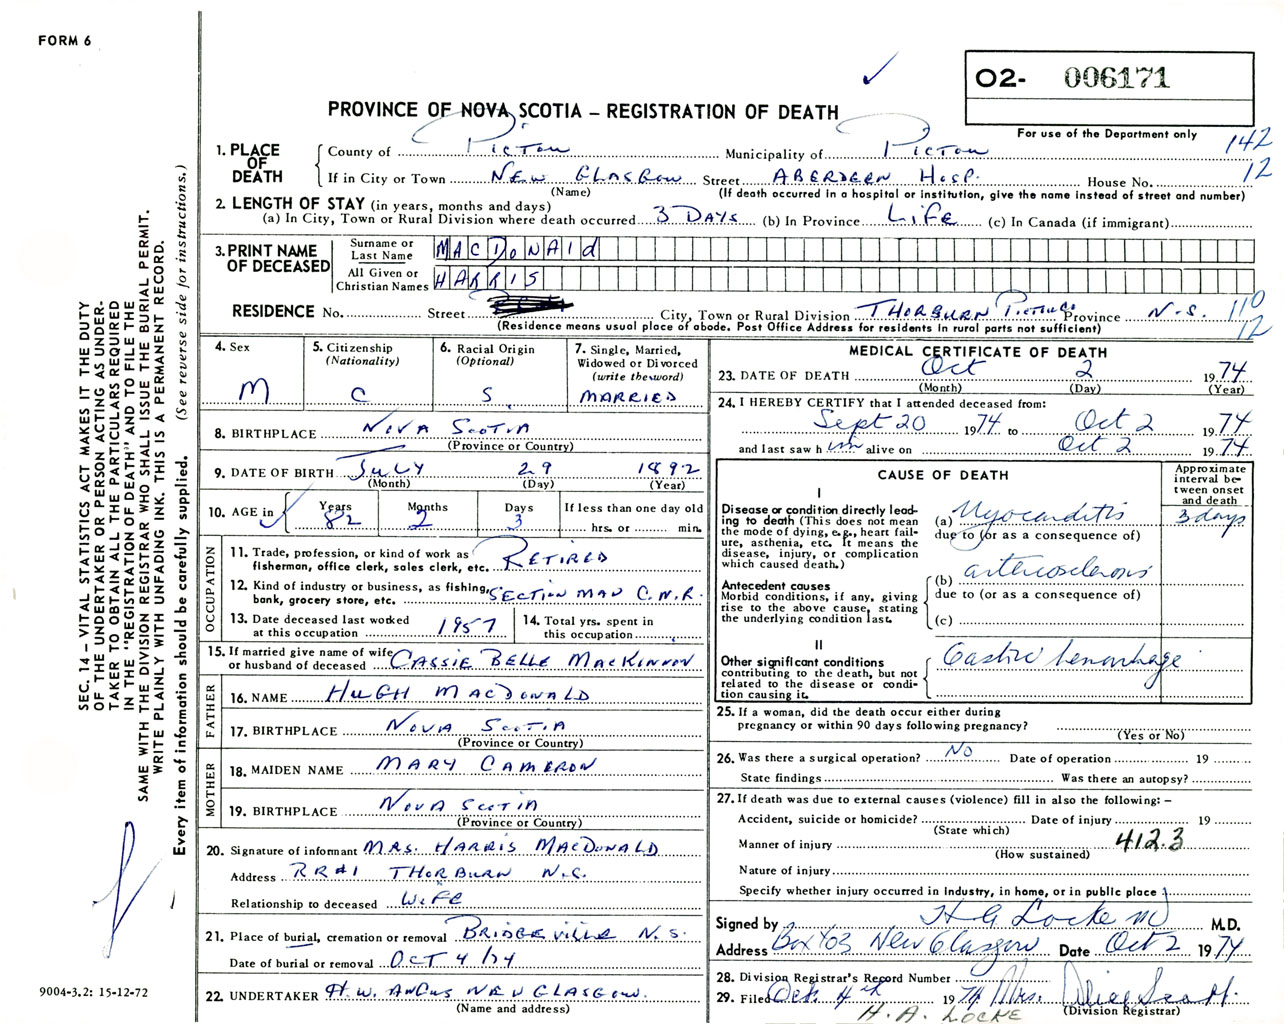 FORM 6
02- 006171
PROVINCE OF NOVA SCOTIA – REGISTRATION OF DEATH
For use of the Department only
142
12
1. PLACE OF DEATH
County of Pictou Municipality of Pictou
If in City or Town New Glasgow Street Aberdeen Hosp. House No.
(Name) (If death occurred in a hospital or institution, give the name instead of street and number)
2. LENGTH OF STAY (in years, months and days)
(a) In City, Town or Rural Division where death occurred 3 Days (b) In Province Life (c) In Canada (if immigrant)
3. PRINT NAME OF DECEASED
Surname or Last Name MACDONAld
All Given or Christian Names HARRIS
RESIDENCE No. Street City, Town or Rural Division Thorburn Pictou Co Province N.S. 110
12
(Residence means usual place of abode. Post Office Address for residents in rural parts not sufficient)
4. Sex M
5. Citizenship (Nationality) C
6. Racial Origin (Optional) S
7. Single, Married, Widowed or Divorced (write the word) MARRIED
8. BIRTHPLACE Nova Scotia
(Province or Country)
9. DATE OF BIRTH July 29 1892
(Month) (Day) (Year)
10. AGE in Years 82 Months 2 Days 3 If less than one day old hrs. or min.
OCCUPATION
11. Trade, profession, or kind of work as fisherman, office clerk, sales clerk, etc. Retired
12. Kind of industry or business, as fishing, bank, grocery store, etc. Section Man C.N.R.
13. Date deceased last worked at this occupation 1957
14. Total yrs. spent in this occupation
15. If married give name of wife or husband of deceased Cassie Belle MacKinnon
FATHER
16. NAME Hugh MacDonald
17. BIRTHPLACE Nova Scotia
(Province or Country)
MOTHER
18. MAIDEN NAME Mary Cameron
19. BIRTHPLACE Nova Scotia
(Province or Country)
20. Signature of informant Mrs. Harris MacDonald
Address RR#1 Thorburn N.S.
Relationship to deceased Wife
21. Place of burial, cremation or removal Bridgeville N.S.
Date of burial or removal Oct 4/74
22. UNDERTAKER H.W. Angus New Glasgow.
(Name and address)
MEDICAL CERTIFICATE OF DEATH
23. DATE OF DEATH Oct 2 1974
(Month) (Day) (Year)
24. I HEREBY CERTIFY that I attended deceased from:
Sept 20 1974 to Oct 2 1974
and last saw him alive on Oct 2 1974
CAUSE OF DEATH
Approximate interval between onset and death
I
Disease or condition directly leading to death (This does not mean the mode of dying, e.g., heart failure, asthenia, etc. It means the disease, injury, or complication which caused death.)
(a) Myocarditis 3 days
due to (or as a consequence of)
Antecedent causes
Morbid conditions, if any, giving rise to the above cause, stating the underlying condition last.
(b) arteriosclerosis
due to (or as a consequence of)
(c)
II
Other significant conditions contributing to the death, but not related to the disease or condition causing it.
Gastric hemorrhage
25. If a woman, did the death occur either during pregnancy or within 90 days following pregnancy?
(Yes or No)
26. Was there a surgical operation? No Date of operation 19
State findings Was there an autopsy?
27. If death was due to external causes (violence) fill in also the following: –
Accident, suicide or homicide? Date of injury 19
(State which)
Manner of injury 412.3
(How sustained)
Nature of injury
Specify whether injury occurred in Industry, in home, or in public place
Signed by H G Locke MD M.D.
Address Box 403 New Glasgow Date Oct 2 1974
28. Division Registrar's Record Number
29. Filed Oct. 4th 1974 Mrs. Alice Scott
(Division Registrar)
H. A. LOCKE
SEC. 14 – VITAL STATISTICS ACT MAKES IT THE DUTY
OF THE UNDERTAKER OR PERSON ACTING AS UNDER-
TAKER TO OBTAIN ALL THE PARTICULARS REQUIRED
IN THE "REGISTRATION OF DEATH" AND TO FILE THE
SAME WITH THE DIVISION REGISTRAR WHO SHALL ISSUE THE BURIAL PERMIT.
WRITE PLAINLY WITH UNFADING INK. THIS IS A PERMANENT RECORD.
Every item of information should be carefully supplied. (See reverse side for instructions.)
9004-3.2: 15-12-72